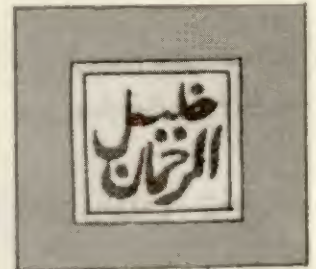 خليل
الرحمان